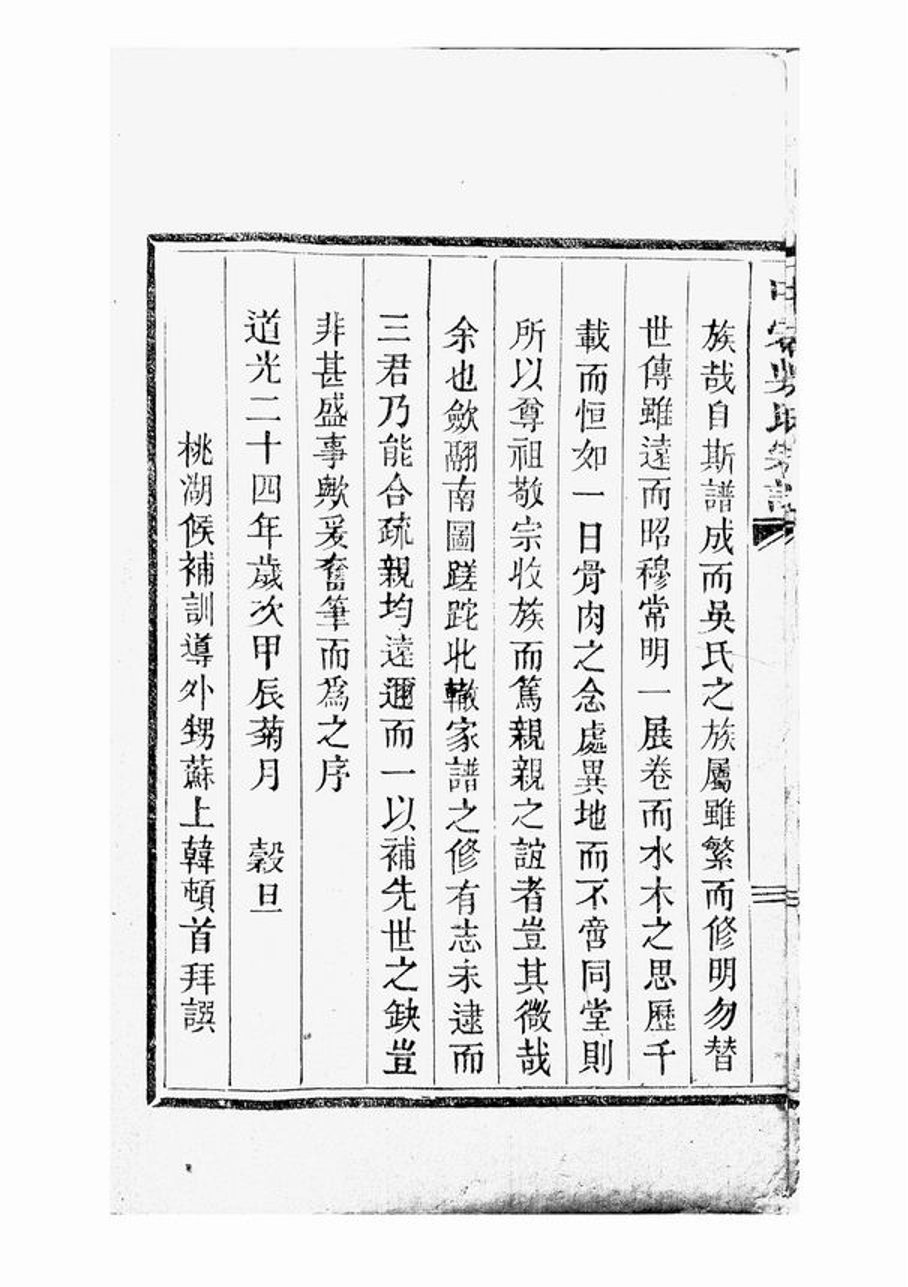 族哉自斯譜成而吳氏之族屬雖繁而修明勿替
世傳雖遠而昭穆常明一展卷而水木之思歷千
載而恒如一日骨肉之念處異地而不啻同堂則
所以尊祖敬宗收族而篤親親之誼者豈其微哉
余也歛翮南圖蹉跎北轍家譜之修有志未逮而
三君乃能合疏親均遠邇而一以補先世之缺豈
非甚盛事歟爰奮筆而爲之序
道光二十四年歲次甲辰菊月　穀旦
桃湖候補訓導外甥蘇上韓頓首拜譔